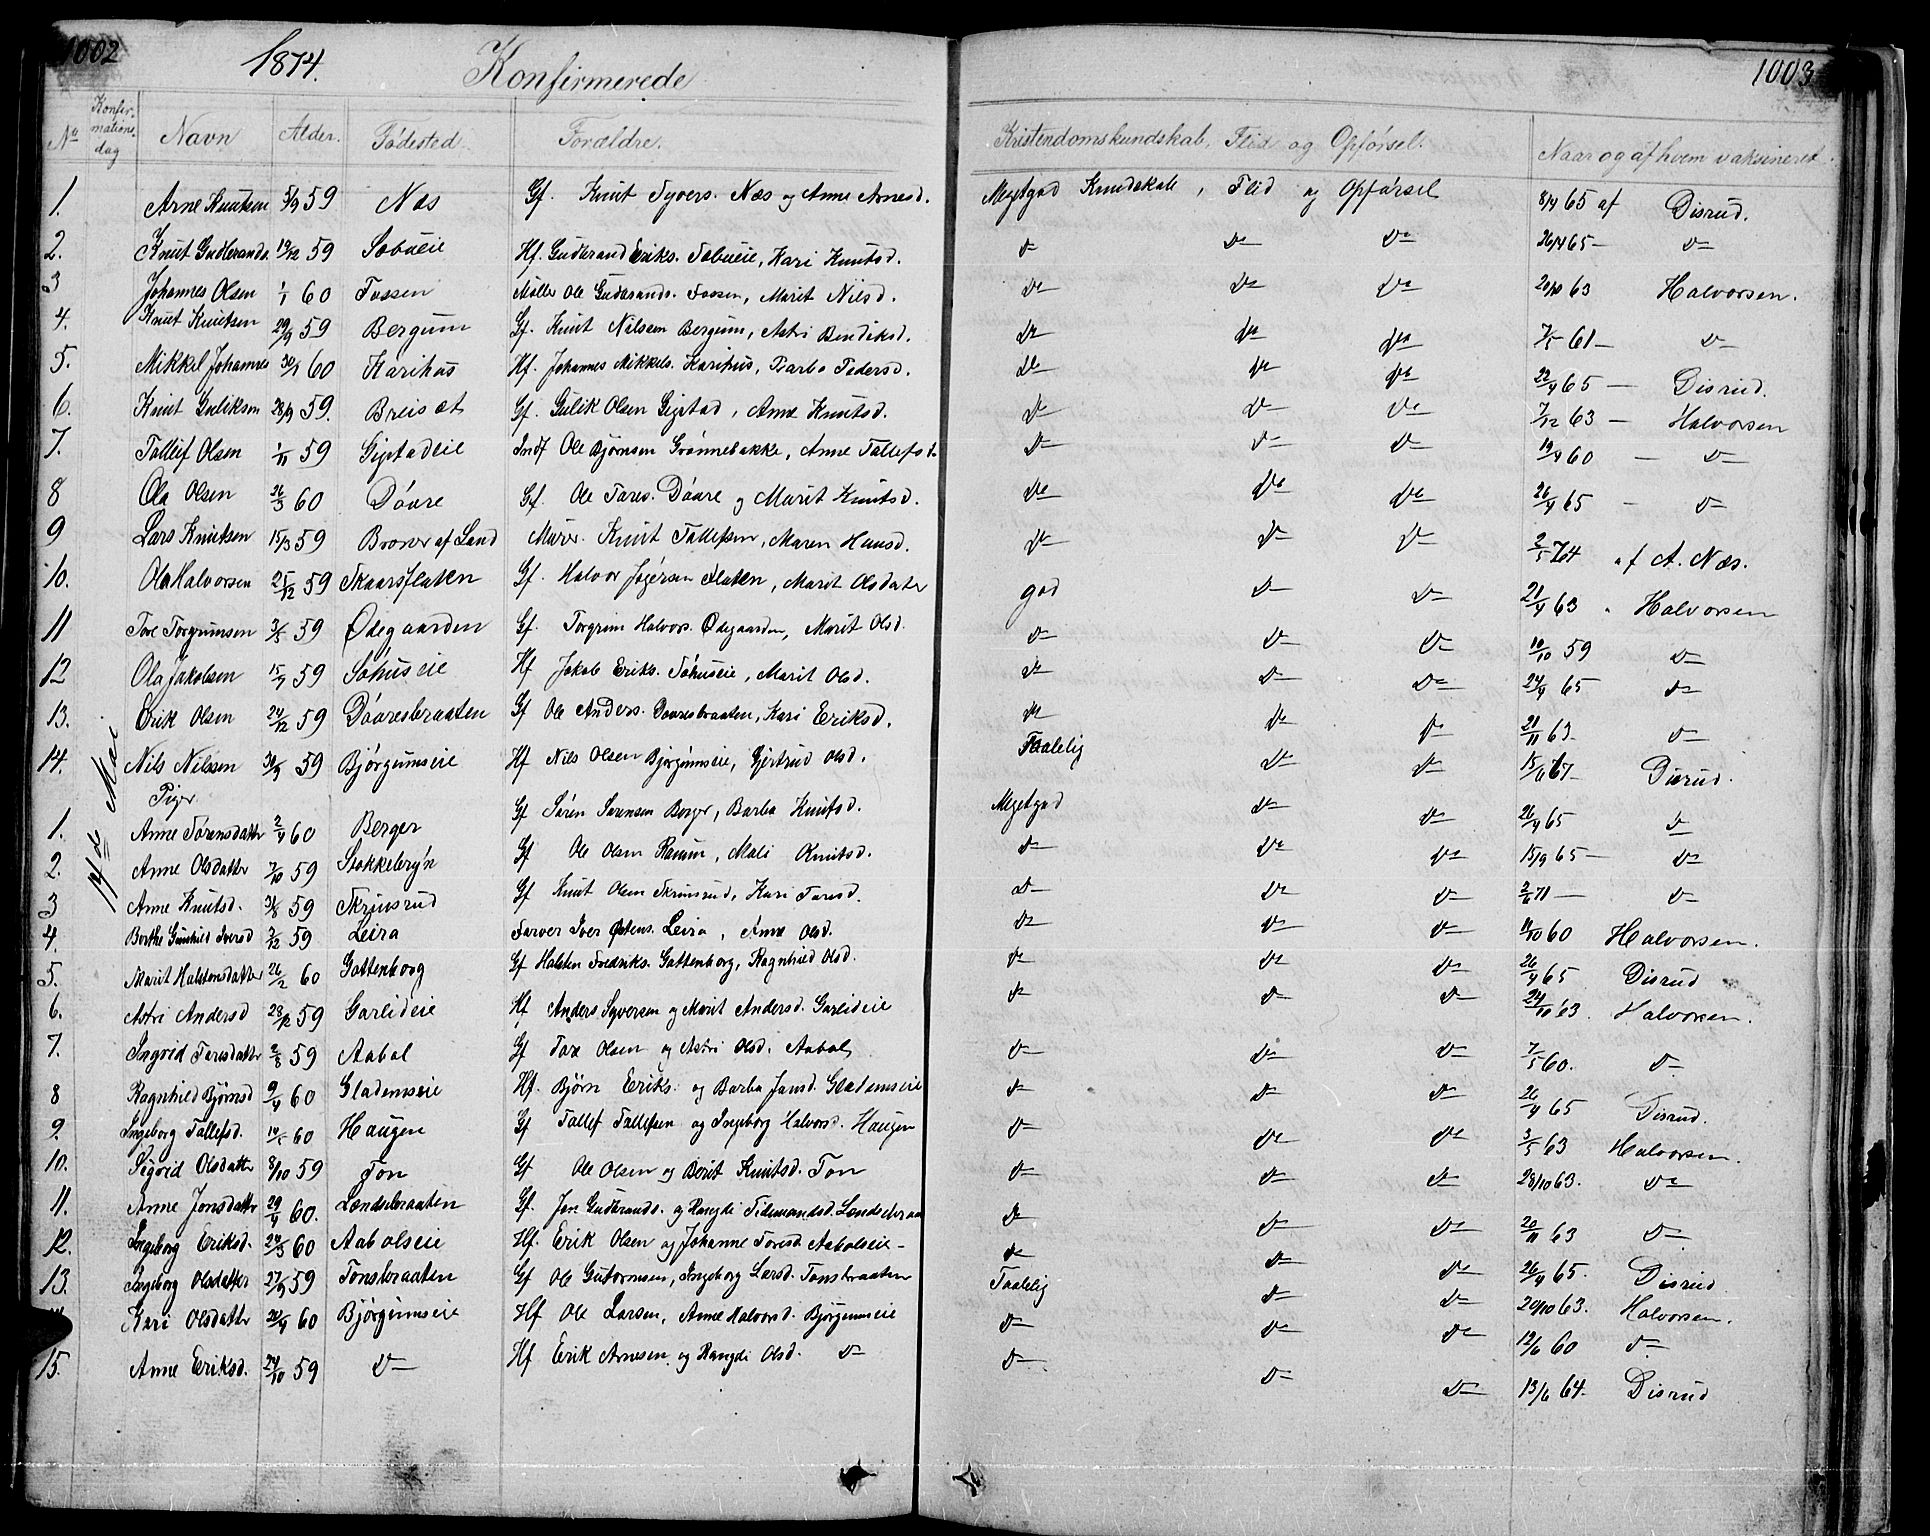 1002 1874. Konfirmerede 1003
No Konfirmationsdag Navn Alder. Fødested Forældre. Kristendomskundskab, Flid og Opførsel. Naar og af hvem vaksineret.
1. Arne Knutsen 5/9 59 Næs Gf. Knut Syvers. Næs og Anne Arnesd. Megetgod Kundskab, Flid og Opførsel 8/4 65 af Disrud.
2. Knut Gudbrands. 19/12 59 Søbueie Hf. Gudbrand Eriks. Søbueie, Kari Knutsd. D— D— D— 26/4 65 — D—
3 Johannes Olsen 1/1 60 Fossen Møller Ole Gudbrands. Fossen, Marit Nilsd. D— D— D— 20/10 63 Halvorsen.
4. Knut Knutsen 29/9 59 Bergum Gf. Knut Nilsen Bergum, Astri Bendiksd. D— D— D— 7/5 61 — D—
5. Mikkel Johannes 30/1 60 Karihus Hf. Johannes Mikkels. Karihus, Barbo Pedersd. D— D— D— 22/4 65 — Disrud.
6. Knut Guliksen 28/9 59. Breiset Gf. Gulik Olsen Gigstad, Anne Knutsd. D— D— D— 7/12 63 — Halvorsen
7. Tollef Olsen 1/11 59 Gigstadeie Indf Ole Bjørnsen Grønnebakke, Anne Tollefsd. D— D— D— 19/4 60 — D—
8 Ola Olsen 26/3 60 Døvre Gf. Ole Tores. Døvre og Marit Knutsd. D— D— D— 26/4 65 — D—
9 Lars Knutsen 15/3 59 Brover af Land Murer. Knut Tollefsen, Maren Hansd. D— D— D— 2/5 74 af A. Næs.
10. Ola Halvorsen 25/12 59 Skaarsflaten Gf. Halvor Jøgersen Flaten, Marit Olsdater god D— D— 21/4 63 „ Halvorsen
11 Tore Torgrimsen 3/5 59 Ødegaarden Gf. Torgrim Halvors. Ødegaarden, Marit Olsd. D— D— D— 10/10 59 D—
12 Ola Jakobsen 15/7 59 Søhuseie Hf Jakob Eriks. Søhuseie, Marit Olsd. D— D— D— 24/9 65 D—
13. Erik Olsen 24/12 59 Døvresbraaten Gf Ole Anders. Døvresbraaten, Kari Eriksd. D— D— D— 21/11 63. D—
14. Nils Nilssen 30/9 59 Bjørgumseie Hf Nils Olsen Bjørgumseie, Gjertrud Olsd. Taalelig D— D— 15/6 67 — Disrud.
Piger.
14de Mai
1. Anne Sørensdatter 2/4 60 Berger Gf Søren Sørensen Berger, Barbo Knutsd. Megetgod D— D— 26/4 65 D
2. Anne Olsdatter 7/10 59 Stokkebryn Gf Ole Olsen Ranum, Mali Knutsd. D— D— D— 15/9 65 — D—
3 Anne Knutsd. 31/8 59 Skrinsrud Gf Knut Olsen Skrinsrud, Kari Toresd. D— D— D— 2/6 71 — D—
4. Berthe Gunhild Iversd 2/12 59 Leira Farver Iver Østens. Leira, Anne Olsd. D— D— D— 11/10 60 Halvorsen.
5. Marit Halstensdatter 26/2 60 Gottenborg Gf Halsten Fredriks. Gottenborg, Ragnhild Olsd. D— D— D— 26/4 65 Disrud
6. Astri Andersd 28/12 59 Garlideie Hf Anders Syversen og Marit Andersd. Garlideie D— D— D— 24/10 63. Halvorsen.
7. Ingrid Toresdatter 2/8 59 Aabol Gf Tore Olsen og Astri Olsd. Aabol D— D— D— 7/5 60. D—
8 Ragnhild Bjørnsd 9/4 60 Gladenseie Hf. Bjørn Eriks. og Barbo Jansd. Gladenseie D— D— D— 26/4 65 Disrud.
9. Ingeborg Tollefsd. 14/5 60 Haugen Gf Tollef Tollefsen og Ingeborg Halvorsd. Haugen D— D— D— 3/5 63 Halvorsen.
10. Sigrid Olsdatter 8/10 59 Ton Gf Ole Olsen og Berit Knutsd. Ton D— D— D— 28/10 63. D—
11. Anne Jonsdatter 29/4 60. Lændsbraaten Gf. Jon Gudbrands. og Rangdi Tidemandsd. Lændsbraa D— D— D— 20/11 63 D—
12. Ingeborg Eriksd. 24/3 60 Aabolseie Hf. Erik Olsen og Johanne Toresd. Aabolseie — D— D— D— 26/4 65. Disrud
13. Ingeborg Olsdatter 27/9 59 Tonsbraaten Gf Ole Gutormsen, Ingeborg Larsd. Tonsbraaten Taalelig D— D— 20/10 63. Halvorsen.
Kari Olsdatter 20/4 60 Bjørgumseie Hf Ole Larsen, Anne Halvorsd. Bjørgumseie D— D— D— 12/6 60 D—
15. Anne Eriksd. 24/10 59 D— Hf Erik Arnesen og Rangdi Olsd. D— D— D— D— 13/6 64. Disrud